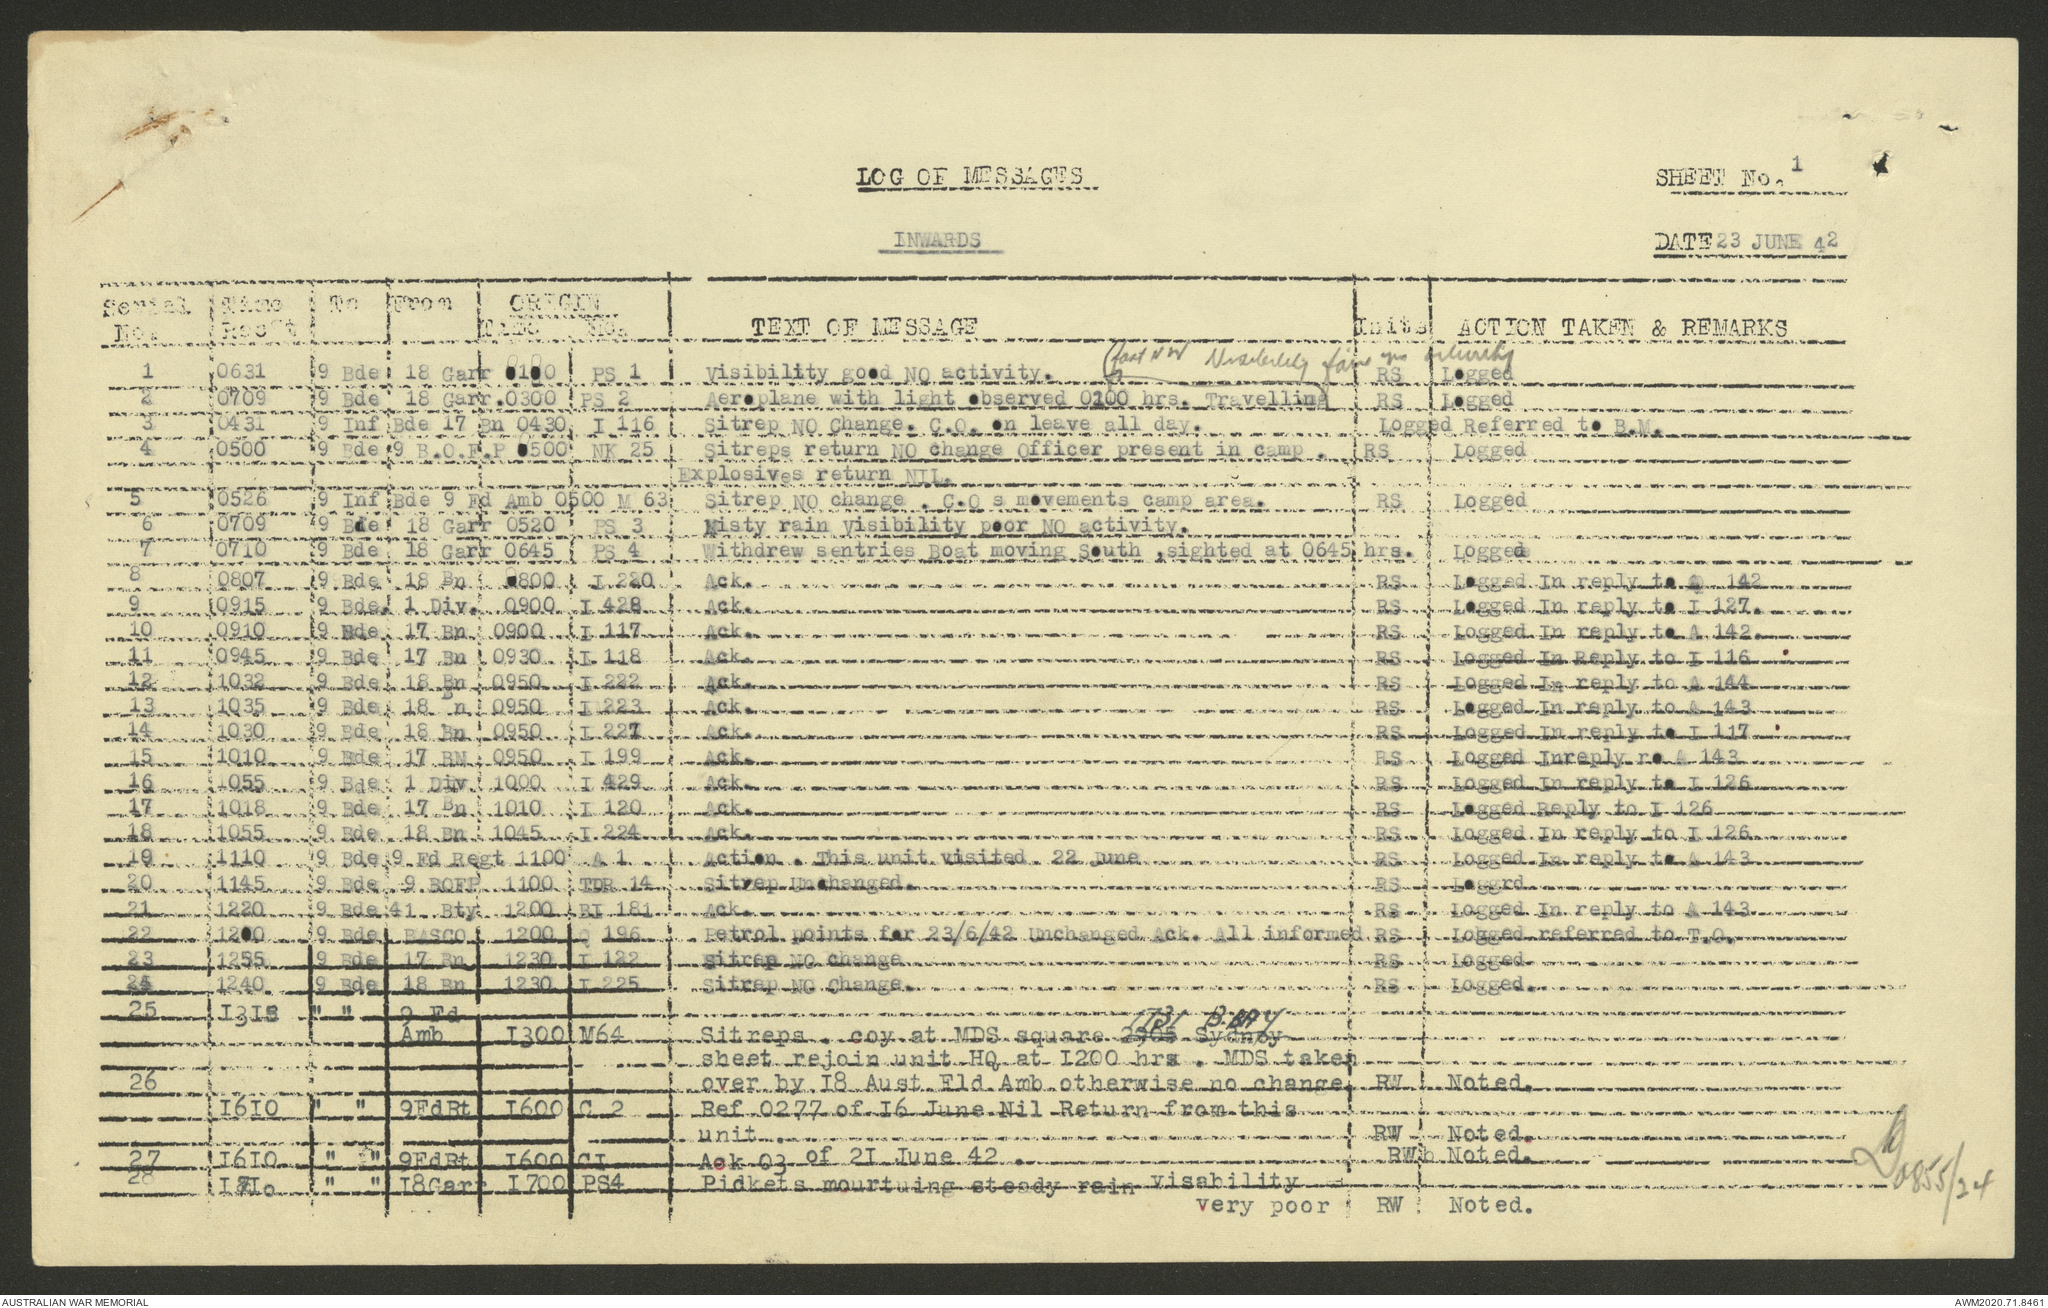 LOG OF MESSAGES
SHEET No. 1
INWARDS
DATE 23 JUNE 42
Serial No. Time Rec't To From ORIGIN Time No. TEXT OF MESSAGE Inits ACTION TAKEN & REMARKS
fast NW Visibility fair no activity
1 0631 9 Bde 18 Garr 0100 PS 1 Visibility good NO activity. RS Logged
2 0709 9 Bde 18 Garr. 0300 PS 2 Aeroplane with light observed 0200 hrs. Travelling RS Logged
3 0431 9 Inf Bde 17 Bn 0430 I 116 Sitrep NO Change. C.O. on leave all day. Logged Referred to B.M.
4 0500 9 Bde 9 B.O.F.P 0500 NK 25 Sitreps return NO change Officer present in camp . RS Logged
Explosives return NIL.
5 0526 9 Inf Bde 9 Fd Amb 0500 M 63 Sitrep NO change . C.O s movements camp area. RS Logged
6 0709 9 Bde 18 Garr 0520 PS 3 Misty rain visibility poor NO activity.
7 0710 9 Bde 18 Garr 0645 PS 4 Withdrew sentries Boat moving South ,sighted at 0645 hrs. Logged
8 0807 9 Bde 18 Bn 0800 I 220 Ack. RS Logged In reply to Q 142
9 0915 9 Bde. 1 Div. 0900 I 428 Ack. RS Logged In reply to I 127.
10 0910 9 Bde 17 Bn 0900 I 117 Ack. RS Logged In reply to A 142.
11 0945 9 Bde 17 Bn 0930 I 118 Ack. RS Logged In Reply to I 116
12 1032 9 Bde 18 Bn 0950 I 222 Ack. RS Logged In reply to A 144
13 1035 9 Bde 18 n 0950 I 223 Ack. RS Logged In reply to A 143
14 1030 9 Bde 18 Bn 0950 I 227 Ack. RS Logged In reply to I 117
15 1010 9 Bde 17 BN 0950 I 199 Ack. RS Logged Inreply ro A 143
16 1055 9 Bde 1 Div 1000 I 429 Ack. RS Logged In reply to I 126
17 1018 9 Bde 17 Bn 1010 I 120 Ack. RS Logged Reply to I 126
18 1055 9 Bde 18 Bn 1045 I 224 Ack. RS Logged In reply to I 126
19 1110 9 Bde 9 Fd Regt 1100 A 1 Action . This unit visited 22 June RS Logged In reply to A 143
20 1145 9 Bde 9 BOFP 1100 TDR 14 Sitrep Unchanged. RS Loggrd
21 1220 9 Bde 41 Bty 1200 BI 181 Ack. RS Logged In reply to A 143
22 1200 9 Bde BASCO 1200 Q 196 Petrol points for 23/6/42 Unchanged Ack. All informed RS Logged referred to T.O.
23 1255 9 Bde 17 Bn 1230 I 122 sitrep NO change RS Logged
24 1240 9 Bde 18 Bn 1230 I 225 Sitrep NO Change. RS Logged.
25 I3I8 " " 9 Fd
1131 B.BAY
Amb I300 M64 Sitreps . coy at MDS square 2905 Sydney
sheet rejoin unit HQ at I200 hrs . MDS taken
26 over by I8 Aust Fld Amb otherwise no change. RW Noted.
I6I0 " " 9FdRt I600 G 2 Ref 0277 of I6 June Nil Return from this
unit . RW Noted.
27 I6I0 " " 9FdRt I600 GI Ack 03 of 2I June 42 . RW Noted.
28 I7Io " " I8Garr I700 PS4 Pidkets mourtuing steady rain visability
very poor RW Noted.
0855/24
AUSTRALIAN WAR MEMORIAL
AWM2020.71.8461